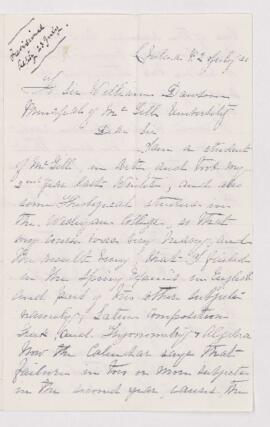 Provisional
To Sir William Dawson
Principal of McGill University
Dear Sir
I am a student
of McGill, in Arts and took my
2nd year last Winter, and also
some Theological studies in
the Wesleyan College, so that
my course was very heavy, and
the result being, that I failed
in the Spring Exams in English
and part of two other subjects
namely, Latin Composition
and Trigonometry & Algebra
Now the Calendar says that
failure in two or more subjects
in the second year, causes the